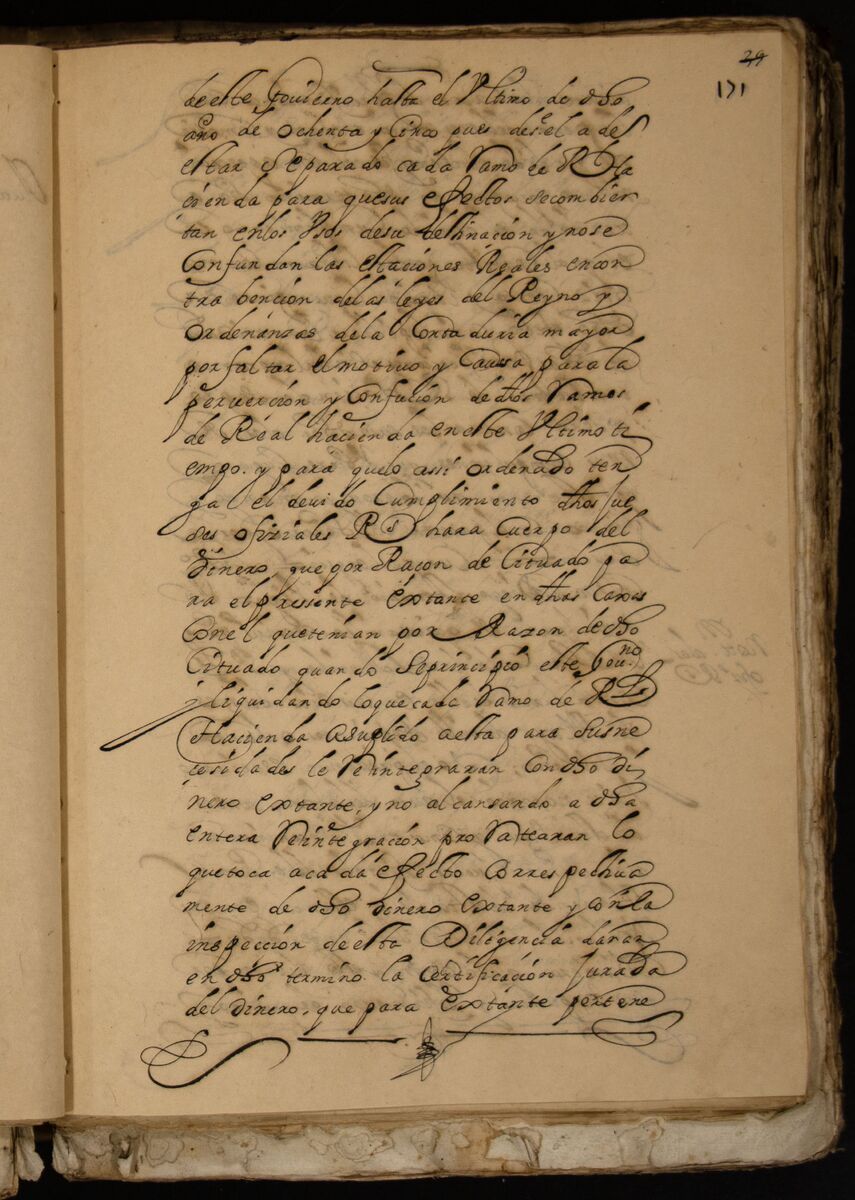 29
171
de este Govierno hasta el Vltimo de dho
año de ochenta y Cinco pues des.^e el a de
estar Separado cada Ramo de R^l Ha
cienda para quesus efectos secombier
tan enlos Vsos desu destinacion y nose
Confundan las estaciones Reales encon
trabencion delas leyes del Reyno y
Ordenanzas dela Contaduria mayor
por faltar elmotivo y Caussa para la
perverción y Confución de dhos Ramos
de Real hacienda en este Vltimo ti
empo. y para quelo assi Ordenado ten
ga el devido Cumplimiento dhos Jue
ses ofiziales R^s hara Cuerpo del
Dinero, que por Racon de Cituado pa
ra el pressente Extante en dhas Caxas
Con el quetenian por Razon de dho
Cituado quando Seprincipió este Gou^no
y liquidando loquecada Ramo de R^l
Hacienda asuplido aesta para Susne
cesidades le Reintegraran Con dho di
nero extante, y no alcansando a dha
entera Reintegración pro Ratearan lo
quetoca acada efecto Correspectiua
mente de dho dinero extante y con la
inspección de esta Diligencia daran
en dho termino la Certificación Jurada
del Dinero, que para Extante pertene